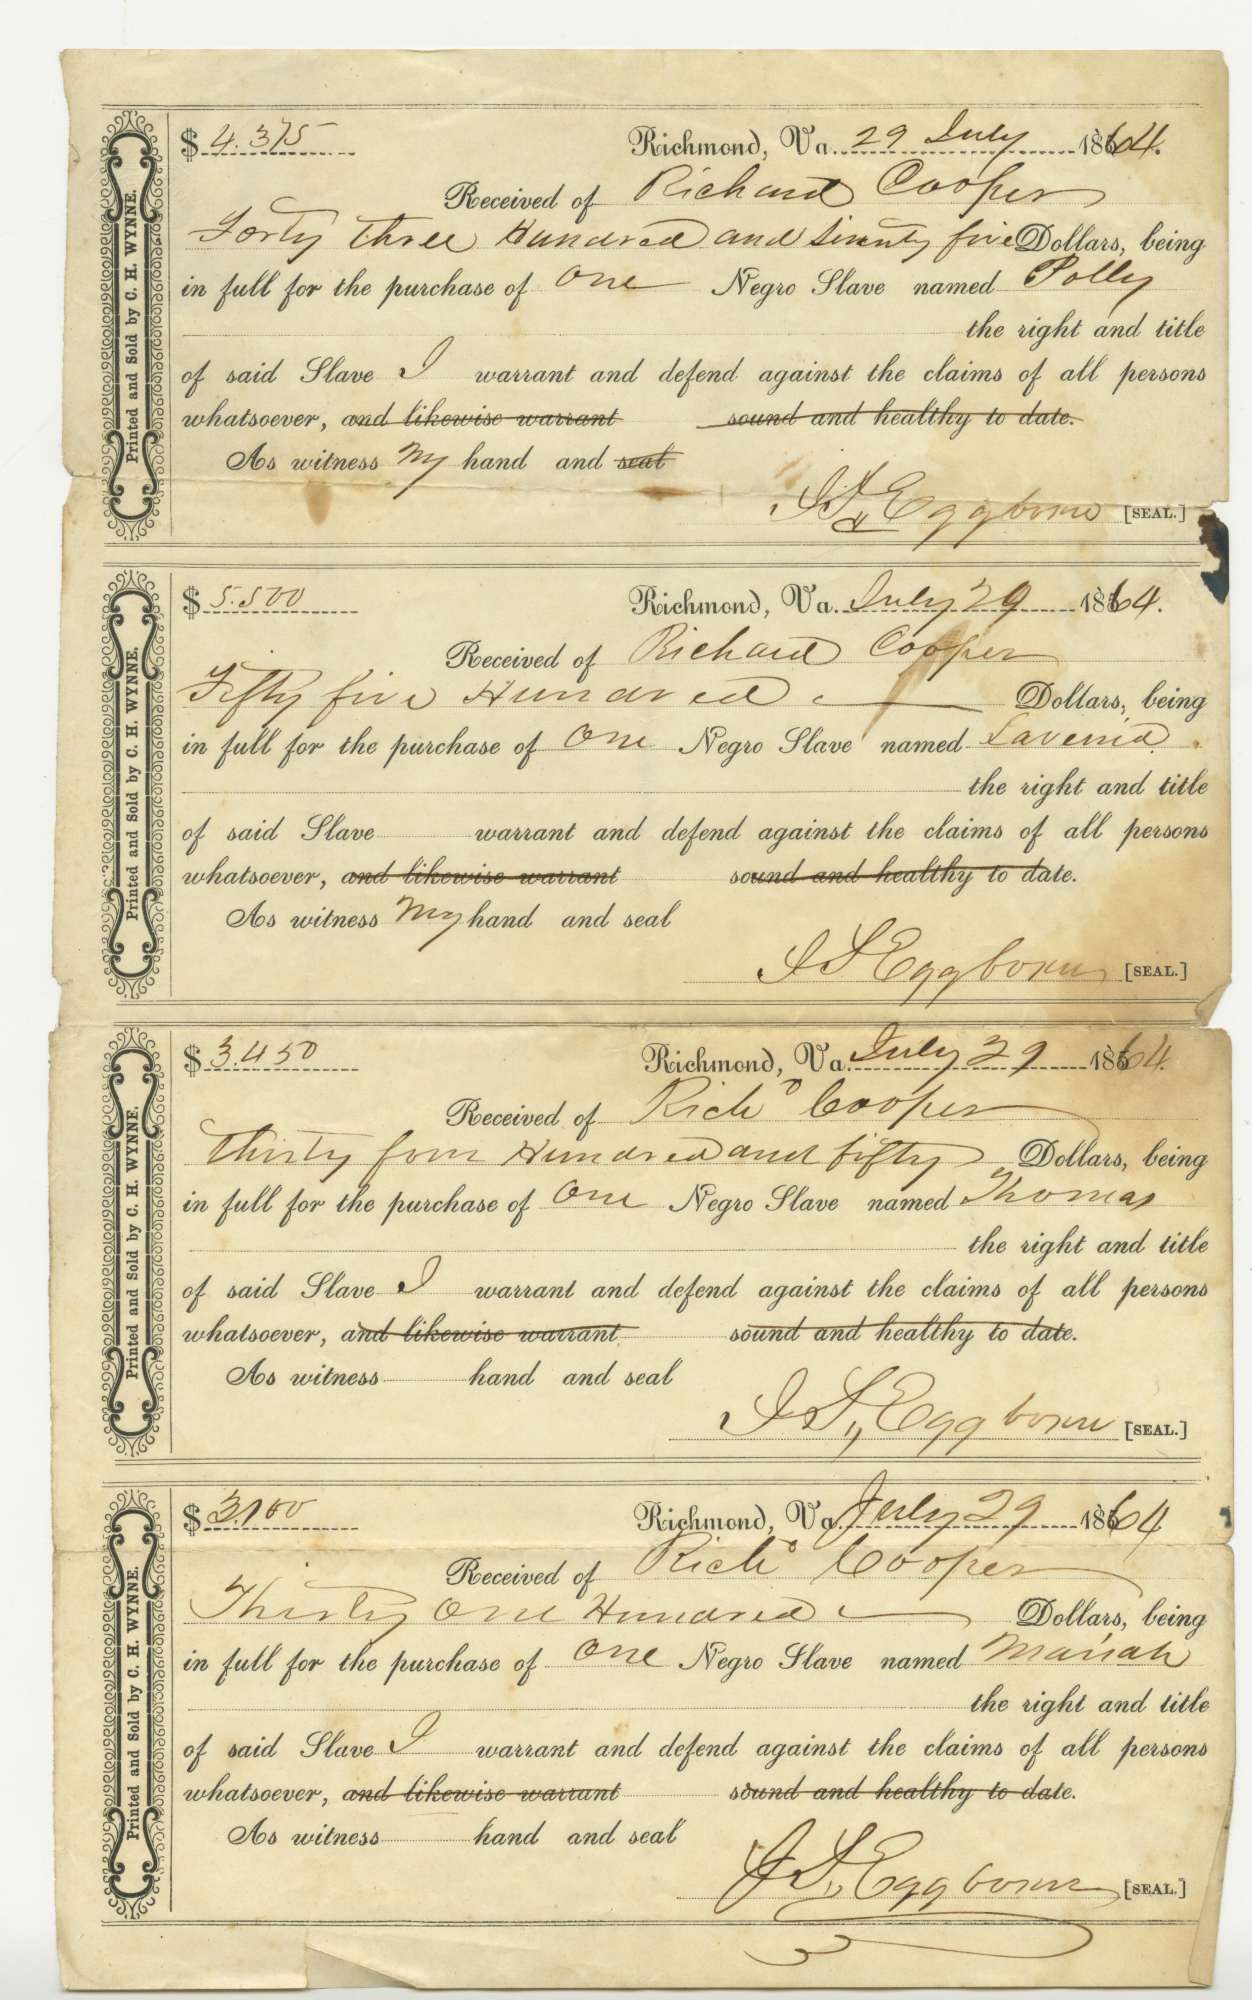 Printed and Sold by C. H. WYNNE.
$ 4.375 Richmond, Va. 29 July 1864.
Received of Richard Cooper
Forty three Hundred and seventy five Dollars, being
in full for the purchase of One Negro Slave named Polly
the right and title
of said Slave I warrant and defend against the claims of all persons
whatsoever, and likewise warrant sound and healthy to date.
As witness My hand and seal
Eggborn [SEAL.]
Printed and Sold by C. H. WYNNE.
$ 5.500 Richmond, Va. July 29 1864.
Received of Richard Cooper
Fifty five Hundred Dollars, being
in full for the purchase of One Negro Slave named Lavenia
the right and title
of said Slave warrant and defend against the claims of all persons
whatsoever, and likewise warrant sound and healthy to date.
As witness My hand and seal
Eggborn [SEAL.]
Printed and Sold by C. H. WYNNE.
$ 3.450 Richmond, Va. July 29 1864.
Received of Richd Cooper
Thirty four Hundred and fifty Dollars, being
in full for the purchase of One Negro Slave named Thomas
the right and title
of said Slave I warrant and defend against the claims of all persons
whatsoever, and likewise warrant sound and healthy to date.
As witness hand and seal
Eggborn [SEAL.]
Printed and Sold by C. H. WYNNE.
$ 3.100 Richmond, Va. July 29 1864
Received of Richd Cooper
Thirty One Hundred Dollars, being
in full for the purchase of One Negro Slave named Mariah
the right and title
of said Slave I warrant and defend against the claims of all persons
whatsoever, and likewise warrant sound and healthy to date.
As witness hand and seal
Eggborn [SEAL.]